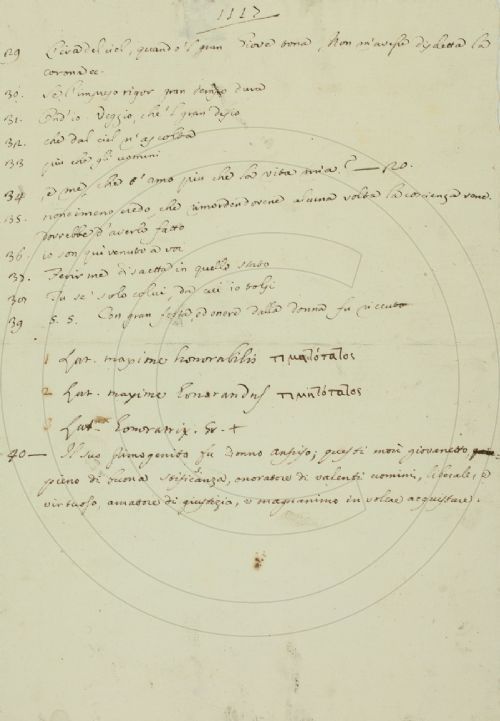 1117
29 L'ira del ciel, quando 'l gran Giove tona, Non m'avesse disdetta la
corona ec.
30. Se l'impreso rigor gran tempo dura
31. Ond'io veggio, che 'l gran desio
32. che dal ciel m'ascolta
33 più che gli uomini
34 e me, che t'amo più che la vita mia? — no.
35. nondimeno credo che rimordendovene alcuna volta la coscienza vene
dovrebbe d'averlo fatto
36. io son qui venuto a voi
37. Ferir me di saetta in quello stato
38 Tu se' solo colui, da cui io tolsi
39 S. S. Con gran festa, ed onore dalla donna fu ricevuto
1 Lat. maxime honorabilis τιμαλότατος
2 Lat. maxime honorandus τιμηλότατος
3 Lat. honoratrix. Gr. +
40 — Il suo primogenito fu donno Anfiso; questi morì giovanetto
pieno di buona stificanza, onoratore di valenti uomini, liberale, e
virtuoso, amatore di giustizia, e magnanimo in voler acquistare.